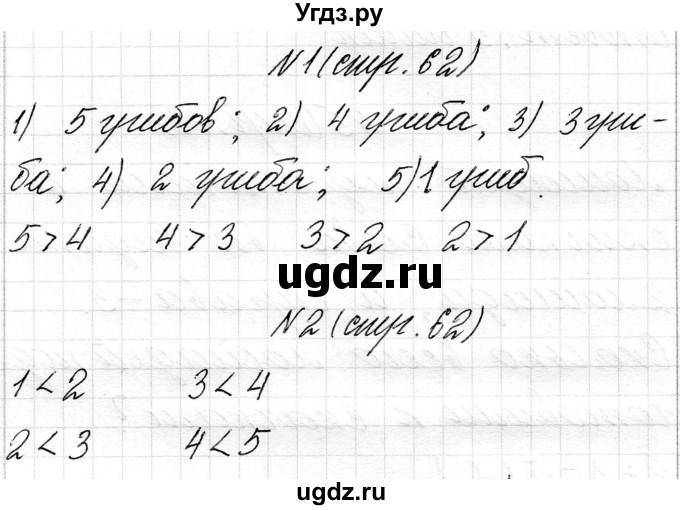 Угдз.ру
№1 (стр. 62)
1) 5 грибов; 2) 4 гриба; 3) 3 гри-
ба; 4) 2 гриба; 5) 1 гриб.
5 > 4 4 > 3 3 > 2 2 > 1
ugdz.ru
№2 (стр. 62)
1 < 2 3 < 4
2 < 3 4 < 5
ugdz.ru